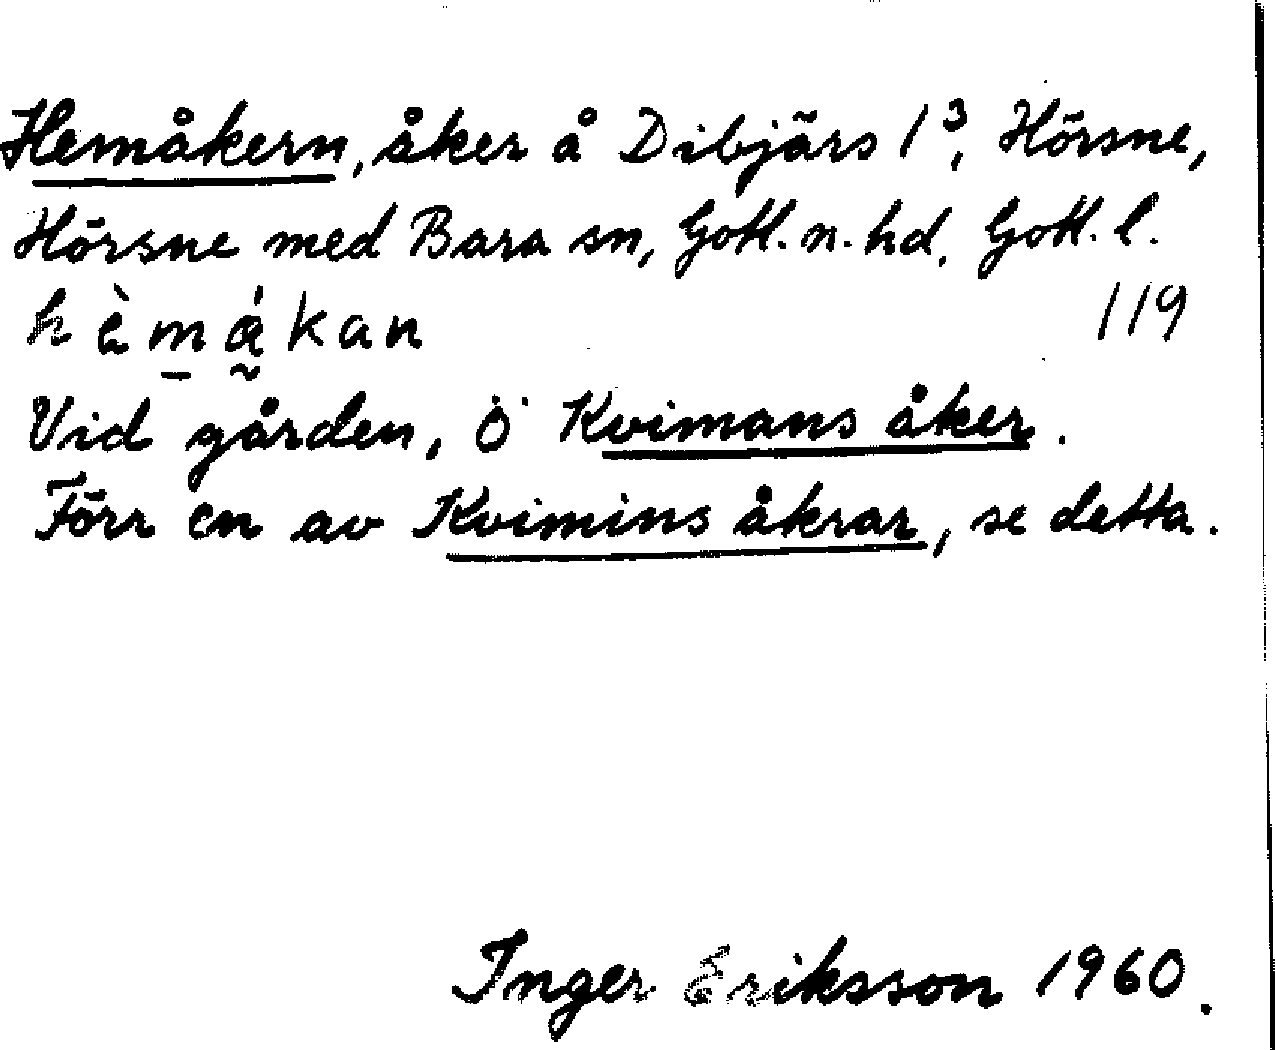 Hemåkern, åker å Dibjärs 1³, Hörsne,
Hörsne med Bara sn, Gotl. n. hd, Gotl. l.
hèmåkan 119
Vid gården, Ö Kvimans åker.
Förr en av Kvimins åkrar, se detta.
Inger Eriksson 1960.